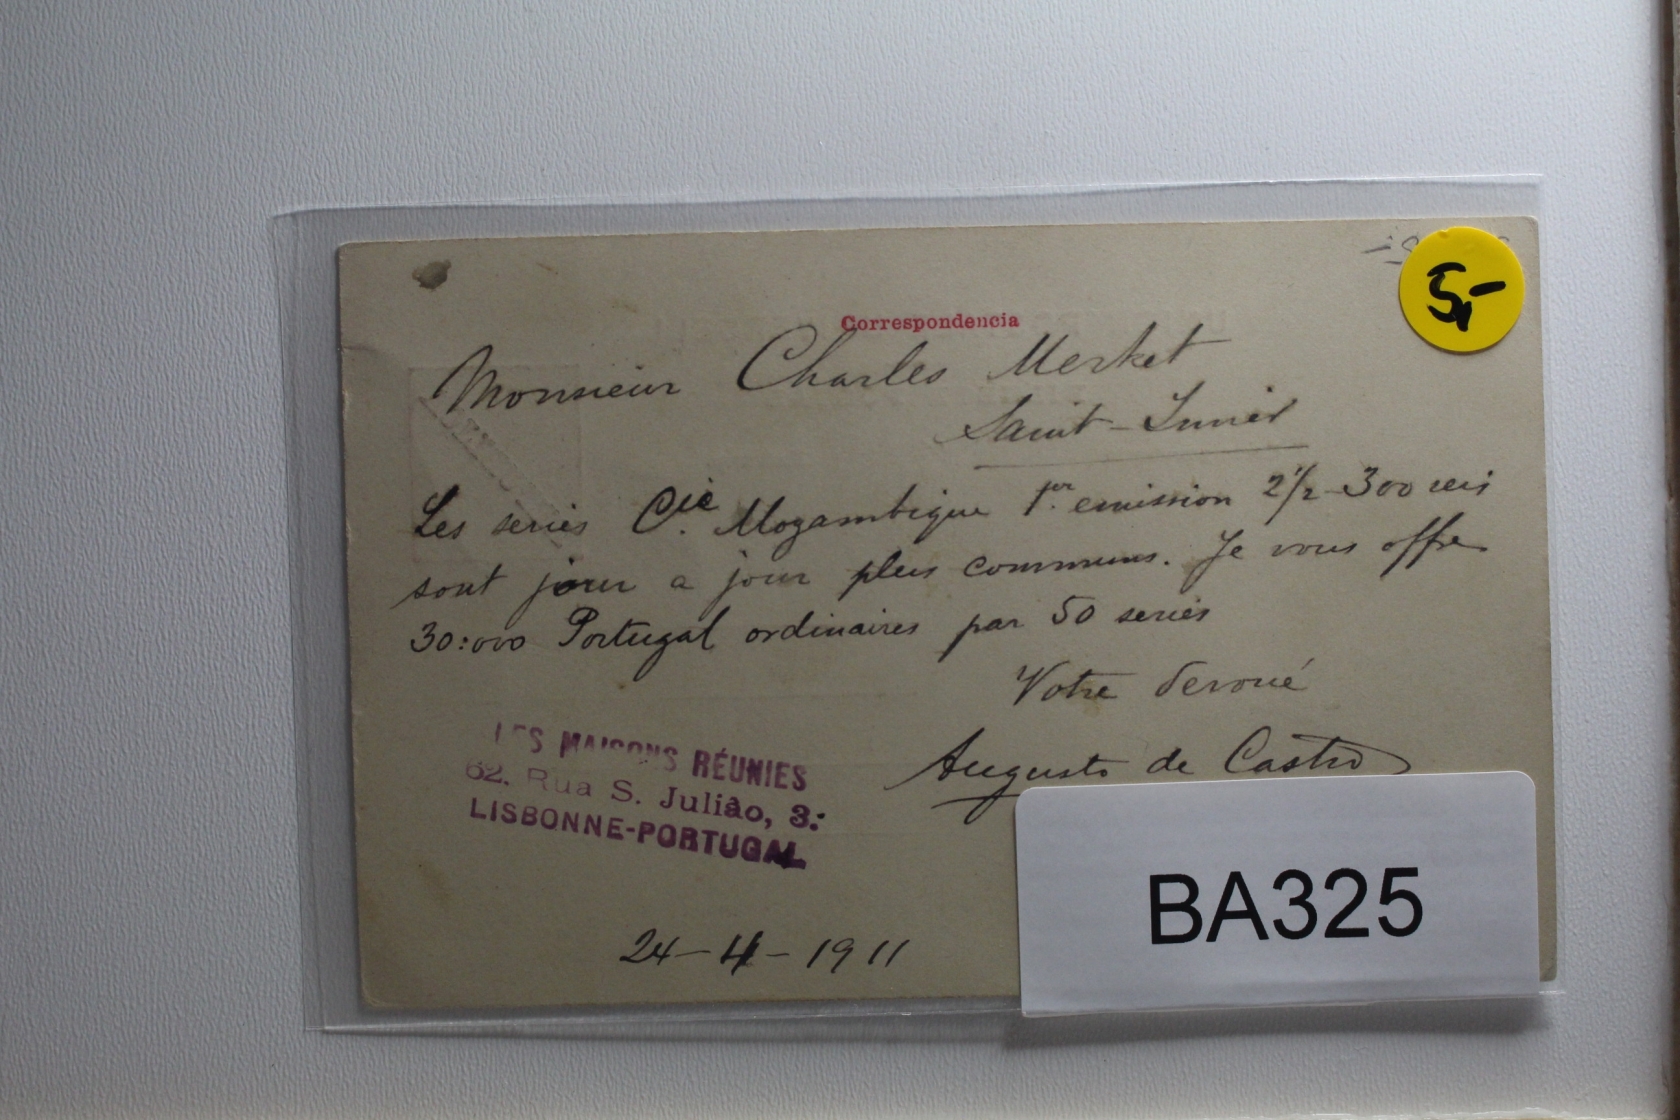 5,-
Correspondencia
Monsieur Charles Merket
Saint-Imier
Les series Cie. Mozambique 1er. emission 2 1/2 - 300 reis
sont jour a jour plus communs. Je vous offre
30:000 Portugal ordinaires par 50 series
Votre devoué
Augusto de Castro
LES MAISONS RÉUNIES
62. Rua S. Julião, 3.º
LISBONNE-PORTUGAL
24-4-1911
BA325